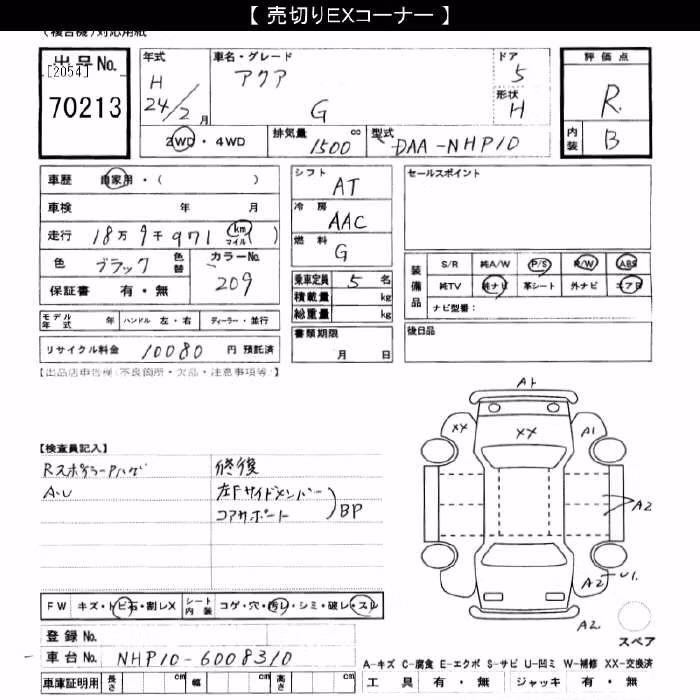 【 売切りEXコーナー 】
(複合機)対応用紙
出品No.
[2054]
70213
年式
H
24/2月
車名・グレード
アクア
G
ドア
5
形状
H
2WD・4WD
排気量 cc
1500
型式
DAA-NHP10
評価点
R
内装
B
車歴 自家用・( )
車検 年 月
走行 18万9千971 ( km マイル )
色 ブラック 色替
カラーNo.
209
保証書 有・無
モデル年式 年 ハンドル 左・右 ディーラー・並行
リサイクル料金 10080 円 預託済
シフト
AT
冷房
AAC
燃料
G
乗車定員 5 名
積載量 kg
総重量 kg
書類期限
月 日
セールスポイント
装備品
S/R 純A/W P/S P/W ABS
純TV 純ナビ 革シート 外ナビ エアB
ナビ型番:
後日品
【出品店申告欄(不良箇所・欠品・注意事項等)】
【検査員記入】
Rスポイラーアハゲ
A・U
修復
左Fサイドメンバー
コアサポート
BP
A1
XX
XX
A1
A2
A2 U1
A2
スペア
FW キズ・トビ石・割レX
シート内装 コゲ・穴・汚レ・シミ・破レ・スレ
登録No.
車台No. NHP10-6008310
車庫証明用 長さ cm 幅 cm 高さ cm
A-キズ C-腐食 E-エクボ S-サビ U-凹ミ W-補修 XX-交換済
工具 有・無 ジャッキ 有・無